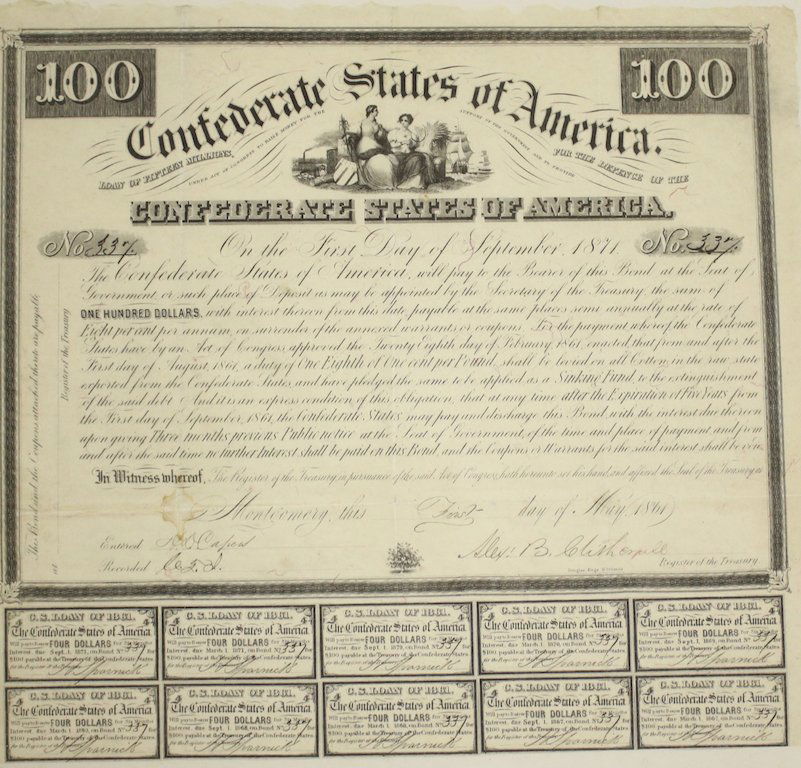 100
100
Confederate States of America.
LOAN OF FIFTEEN MILLIONS,
UNDER ACT OF CONGRESS TO RAISE MONEY FOR THE
SUPPORT OF THE GOVERNMENT AND TO PROVIDE
FOR THE DEFENCE OF THE
CONFEDERATE STATES OF AMERICA.
No 337.
No. 337.
On the First Day of September, 1871.
The Confederate States of America, will pay to the Bearer of this Bond at the Seat of
Government, or such place of Deposit as may be appointed by the Secretary of the Treasury, the sum of
ONE HUNDRED DOLLARS, with interest thereon from this date payable at the same places semi annually at the rate of
Eight per cent per annum, on surrender of the annexed warrants or coupons. For the payment whereof the Confederate
States have by an Act of Congress approved the Twenty Eighth day of February 1861, enacted that from and after the
First day of August, 1861, a duty of One Eighth of One cent per Pound, shall be levied on all Cotton in the raw state
exported from the Confederate States, and have pledged the same to be applied as a Sinking Fund, to the extinguishment
of the said debt. And it is an express condition of this obligation, that at any time after the Expiration of Five Years from
the First day of September, 1861, the Confederate States may pay and discharge this Bond, with the interest due thereon
upon giving Three months previous Public notice at the Seat of Government, of the time and place of payment and from
and after the said time no further Interest shall be paid on this Bond, and the Coupons or Warrants for the said interest shall be void.
In Witness whereof, The Register of the Treasury, in pursuance of the said Act of Congress, hath hereunto set his hand and affixed the Seal of the Treasury at
Montgomery, this First day of May, 1861
Entered
Alex: B. Clitherall
Recorded
Register of the Treasury
The Bond and the Coupons attached thereto are payable
at
Register of the Treasury
C.S. LOAN OF 1861.
The Confederate States of America
Will pay to Bearer FOUR DOLLARS for
Interest due Sept. 1, 1871, on Bond No 337
$100 payable at the Treasury of the Confederate States.
for the Register of the Treasury
C.S. LOAN OF 1861.
The Confederate States of America
Will pay to Bearer FOUR DOLLARS for
Interest due March 1, 1871, on Bond No 337
$100 payable at the Treasury of the Confederate States.
for the Register of the Treasury
C.S. LOAN OF 1861.
The Confederate States of America
Will pay to Bearer FOUR DOLLARS for
Interest due Sept. 1, 1870, on Bond No 337
$100 payable at the Treasury of the Confederate States.
for the Register of the Treasury
C.S. LOAN OF 1861.
The Confederate States of America
Will pay to Bearer FOUR DOLLARS for
Interest due March 1, 1870, on Bond No 337
$100 payable at the Treasury of the Confederate States.
for the Register of the Treasury
C.S. LOAN OF 1861.
The Confederate States of America
Will pay to Bearer FOUR DOLLARS for
Interest due Sept. 1, 1869, on Bond No 337
$100 payable at the Treasury of the Confederate States.
for the Register of the Treasury
C.S. LOAN OF 1861.
The Confederate States of America
Will pay to Bearer FOUR DOLLARS for
Interest due March 1, 1869, on Bond No 337
$100 payable at the Treasury of the Confederate States.
for the Register of the Treasury
C.S. LOAN OF 1861.
The Confederate States of America
Will pay to Bearer FOUR DOLLARS for
Interest due Sept. 1, 1868, on Bond No 337
$100 payable at the Treasury of the Confederate States.
for the Register of the Treasury
C.S. LOAN OF 1861.
The Confederate States of America
Will pay to Bearer FOUR DOLLARS for
Interest due March 1, 1868, on Bond No 337
$100 payable at the Treasury of the Confederate States.
for the Register of the Treasury
C.S. LOAN OF 1861.
The Confederate States of America
Will pay to Bearer FOUR DOLLARS for
Interest due Sept. 1, 1867, on Bond No 337
$100 payable at the Treasury of the Confederate States.
for the Register of the Treasury
C.S. LOAN OF 1861.
The Confederate States of America
Will pay to Bearer FOUR DOLLARS for
Interest due March 1, 1867, on Bond No 337
$100 payable at the Treasury of the Confederate States.
for the Register of the Treasury